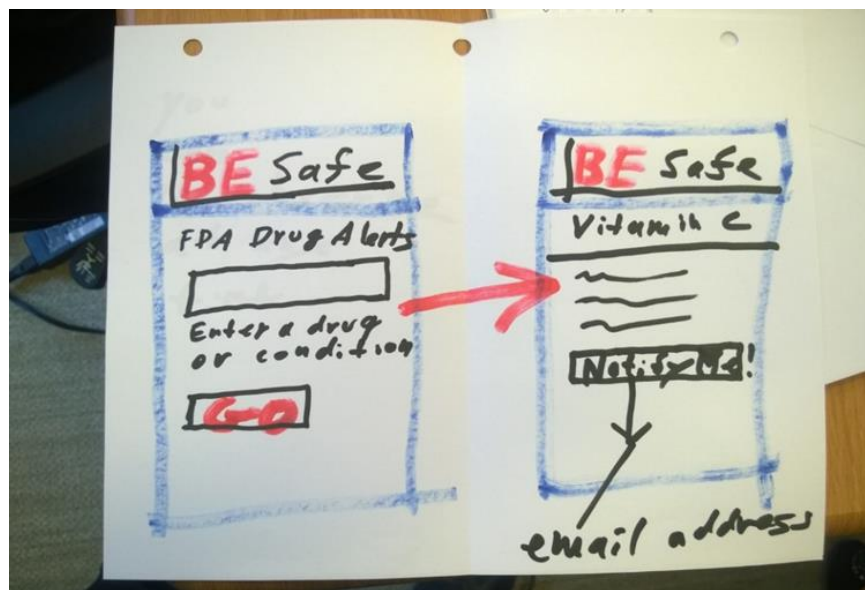 BE Safe
FDA Drug Alerts
Enter a drug
or condition
GO
BE Safe
Vitamin C
Notify Me!
email address